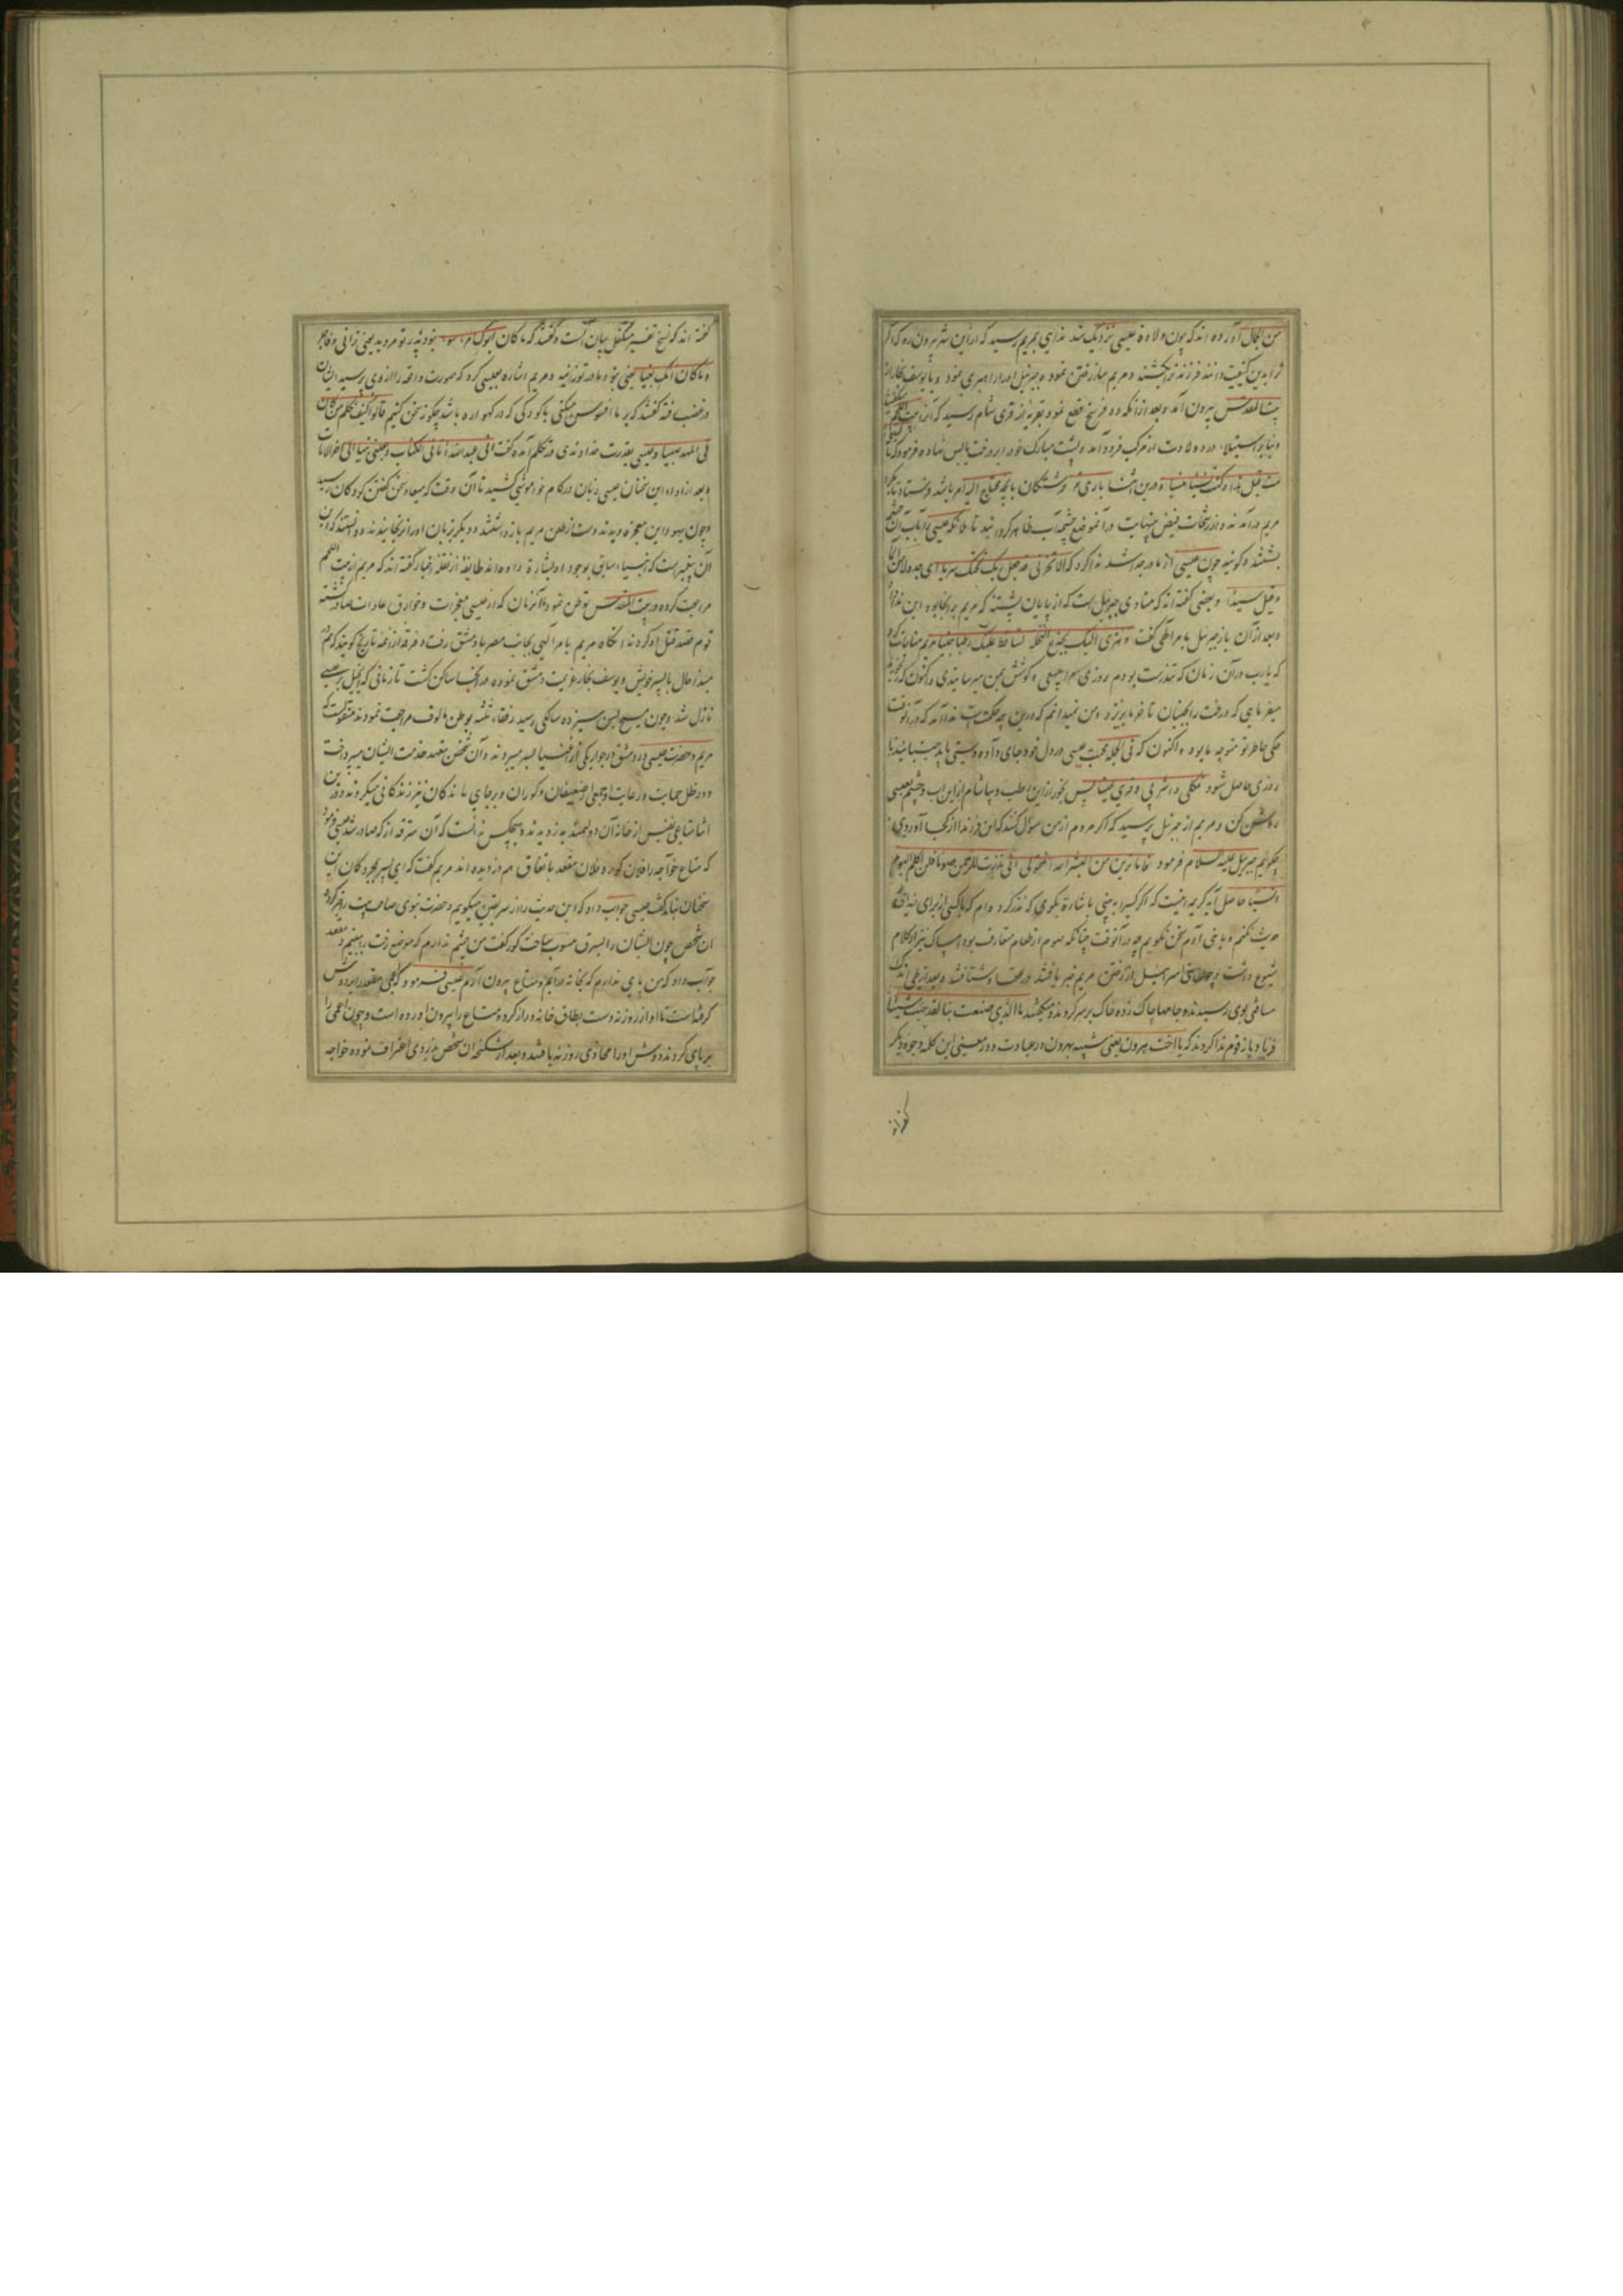 من الجمال آورده اند که چون ولادت عیسی نزدیک شد ندای بمریم رسید که ازین شهر بیرون رو که اگر
ترا بدین کیفیت دانند فرزند ترا بکشند و مریم مبادرت نموده و جبرئیل او را راهبری نمود و با یوسف نجار از
بیت المقدس بیرون آمد و بعد از آنکه دو فرسخ قطع نمود بقریه از قری شام رسید که آنرا بیت اللحم
و بنابر استیلاء درد ولادت از مرکب فرود آمد و پشت مبارک خود را بر درخت یابس نهاده فرمود که یا
مت قبل هذا و کنت نسیا منسیا و درین اثنا باری فرشتگان بانچه محتاج الیه مریم باشد فرستاد تا نزد
مریم درآمدند و از رشحات فیض بینهایت در آن موضع چشمه آب ظاهر گردانید تا ملائکه عیسی را بآب آن چشمه
بشستند و گویند چون عیسی از مادر جدا شد ندا کرد که الا تحزنی قد جعل ربک تحتک سریا ای جدولا من الماء
و قیل سیدا و بعضی گفته اند که منادی جبرئیل است که از پایان پشته که مریم بر آنجا بود این ندا داد
و بعد از آن باز جبرئیل بامر الهی گفت و هزی الیک بجذع النخلة تساقط علیک رطبا جنیا مریم مناجات کرد
که یارب در آن زمان که تندرست بودم روزی مرا بی سعی و کوشش بمن میرسانیدی و اکنون که رنجورم
میفرمایی که درخت را بجنبان تا خرما بریزد و من نمیدانم که درین چه حکمتست ندا آمد که در آن وقت
همگی خاطر تو متوجه ما بود و اکنون که فی الجمله محبت عیسی در دل خود جای داده دستی باید جنبانید تا
روزی حاصل شود فکلی و اشربی و قری عینا پس بخور ازین رطب و بیاشام ازین آب و چشم بعیسی
روشن کن و مریم از جبرئیل پرسید که اگر مردم از من سؤال کنند که این فرزند از کجا آوردی
چگویم جبرئیل علیه السلام فرمود فاما ترین من البشر احدا فقولی انی نذرت للرحمن صوما فلن اکلم الیوم
انسیا حاصل آیه کریمه اینست که اگر کسی را به بینی باشارة بگوی که نذر کرده ام که با کسی از برای خدای
حدیث نکنم و با بنی آدم سخن نگویم چه در آنوقت چنانکه صوم از طعام متعارف بود امساک نیز از کلام
شیوع داشت و چون بنی اسرائیل از رفتن مریم خبر یافتند در عقب او شتافتند و بعد از طی اندک
مسافتی بوی رسیدند و جامها چاک زده خاک بر سر کردند و میگفتند ما الذی صنعت بنا لقد جئت شیئا
فریا و باز قوم ندا کردند که یا اخت هرون یعنی شبیه بهرون در عبادت و در معنی این کلمه وجوه دیگر
گفته اند
گفته اند که نسخ تفسیر متکفل بیان آنست و گفتند که ما کان ابوک امرء سوء نبود پدر تو مرد بد یعنی زانی و فاجر
و ما کانت امک بغیا یعنی نبود مادر تو زانیه و مریم اشاره بعیسی کرد که صورت واقعه را از وی پرسید ایشان
در غضب شده گفتند که بر ما افسوس میکنی با کودکی که در گهواره باشد چگونه سخن کنیم قالوا کیف نکلم من کان
فی المهد صبیا و عیسی بقدرت خداوندی در تکلم آمده گفت انی عبد الله اتانی الکتاب و جعلنی نبیا الی اخر الایات
و بعد از اداء این سخنان عیسی زبان در کام خاموشی کشید تا آن وقت که میعاد سخن گفتن کودکان رسید
و چون یهود این معجزه دیدند دست از طعن مریم باز داشتند و دیگر بزبان او را نرنجانیدند و دانستند که این
آن پیغمبرست که انبیاء سابق بوجود او بشارة داده اند طایفه از نقله اخبار گفته اند که مریم از بیت اللحم
مراجعت کرده در بیت المقدس توطن نمود تا آنزمان که از عیسی معجزات و خوارق عادات صادر گشته
قوم قصد قتل او کردند آنگاه مریم بامر الهی بجانب مصر یا دمشق رفت و فرقه از ائمه تاریخ گویند که مریم در
مبدأ حال با پسر خویش و یوسف نجار عزیمت دمشق نموده در آنجا ساکن گشت تا زمانی که انجیل بر عیسی
نازل شد و چون مسیح بسن سیزده سالگی رسید رفقاء ثلثه بوطن مالوف مراجعت نمودند منقولست که
مریم و حضرت عیسی در دمشق در جوار یکی از اغنیا بسر میبردند و آن شخص بتعهد خدمت ایشان میپرداخت
و در ظل حمایت و رعایت او جمعی از ضعیفان و کوران و برجای ماندگان نیز زندگانی میکردند و درین
اثنا متاعی نفیس از خانه آن دولتمند بدزدیدند و هیچکس ندانست که آن سرقه از که صادر شد عیسی فرمود
که متاع خواجه را فلان کور و فلان مقعد باتفاق هم دزدیده اند مریم گفت که ای پسر بمجرد گمان این
سخنان نباید گفت عیسی جواب داد که این حدیث را از سر یقین میگویم و حضرت نبوی صاحب بیت را خبر کرد و
آن شخص چون ایشان را بسرقه منسوب ساخت کور گفت من چشم ندارم که موضع رخت را ببینم و مقعد
جواب داد که من پای ندارم که بخانه درآیم و متاع بیرون آرم عیسی فرمود که اعمی مقعد را بر دوش
گرفته است تا او از روزنه دست بطاق خانه دراز کرده متاع را بیرون آورده است و چون اعمی را
بر پای کردند دوش او را محاذی روزنه یافتند و بعد از شکنجه آن شخص بدزدی اعتراف نموده خواجه